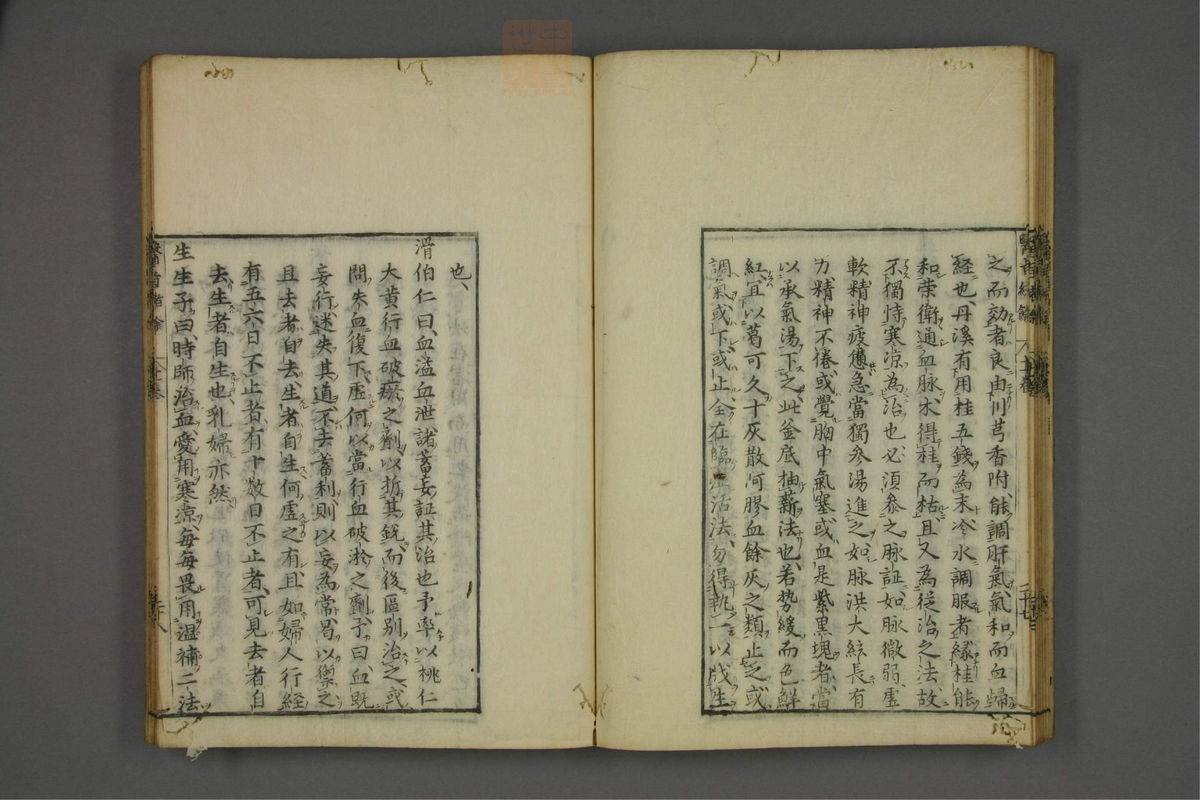 之而効者良由川芎香附能調肝氣氣和而血歸
経也丹溪有用桂五錢為末冷水調服者縁桂能
和荣衛通血脉木得桂而枯且又為従治之法故
不獨恃寒凉為治也必須参之脉証如脉微弱虚
軟精神疲憊急當獨参湯進之如脉洪大絃長有
力精神不倦或覺胸中氣塞或血是紫黒塊者當
以承氣湯下之此釜底抽薪法也若勢緩而色鮮
紅宜以葛可久十灰散阿膠血餘灰之類止之或
調氣或下或止全在臨症活法勿得執一以戕生
也
滑伯仁曰血溢血泄諸蓄妄証其治也予率以桃仁
大黄行血破瘀之劑以折其鋭而後區别治之或
問失血復下虚何以當行血破瘀之劑予曰血既
妄行迷失其道不去蓄利則以妄為常曷以禦之
且去者自去生者自生何虚之有且如婦人行経
有五六日不止者有十数日不止者可見去者自
去生者自生也乳婦亦然
生生子曰時師治血愛用寒凉毎毎畏用温補二法